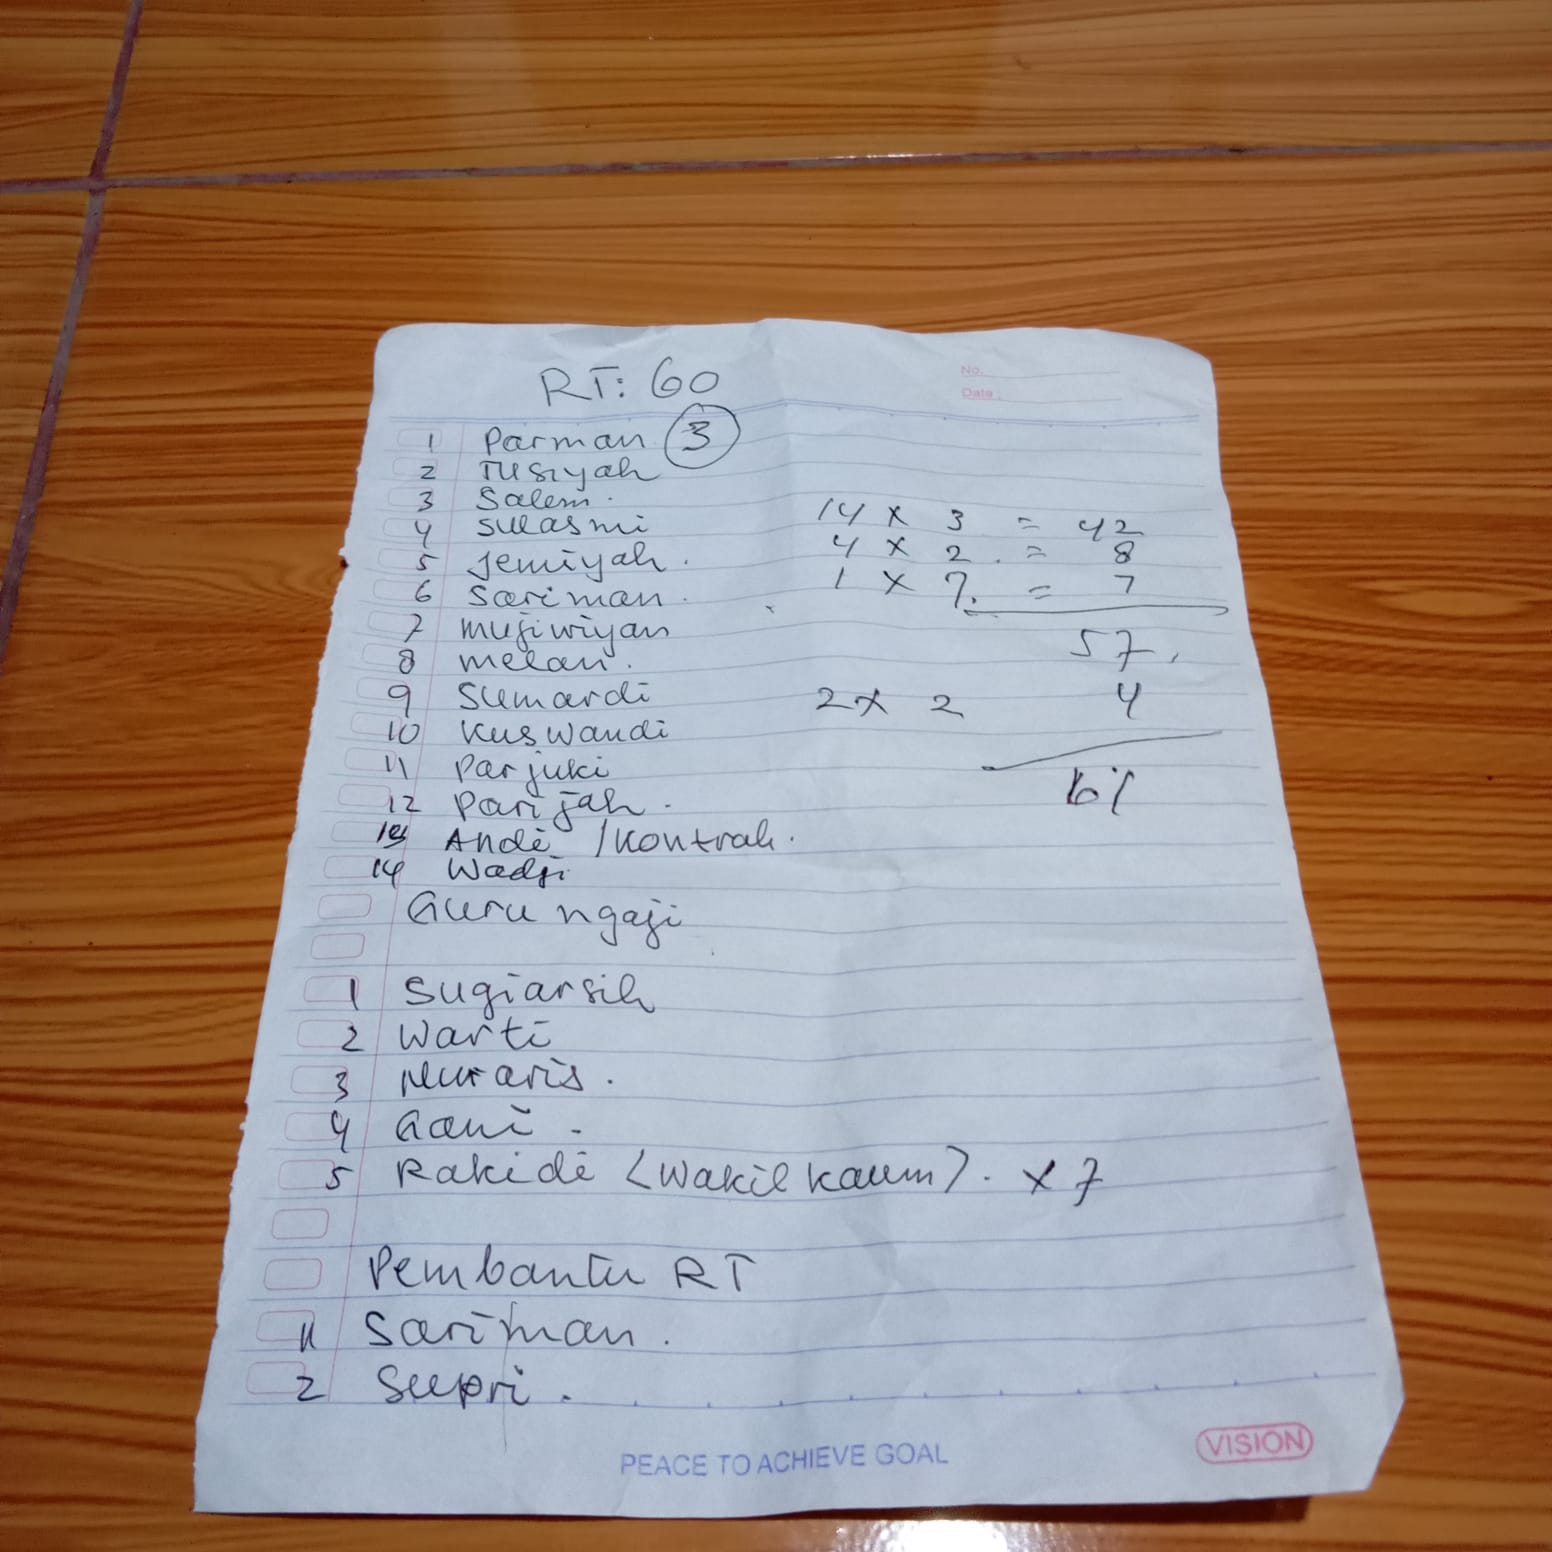 RT: 60
No.
Date :
1 Parman (3)
2 Tusiyah
3 Salem.
4 Sulasmi
5 Jemiyah.
6 Sariman.
7 mujiwiyan
8 melan.
9 Sumardi
10 Kuswandi
11 Parjuki
12 Parijah.
13 Andi /Kontrak.
14 Wadji
14 x 3 = 42
4 x 2. = 8
1 x 7. = 7
57,
2 x 2 4
61
Guru ngaji
1 Sugiarsih
2 Warti
3 Nur aris.
4 Gani.
5 Rakidi (Wakil kaum). x 7
Pembantu RT
1 Sariman.
2 Supri.
PEACE TO ACHIEVE GOAL
VISION